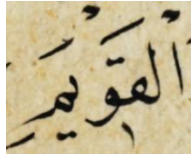 الْقَوِيْمِ